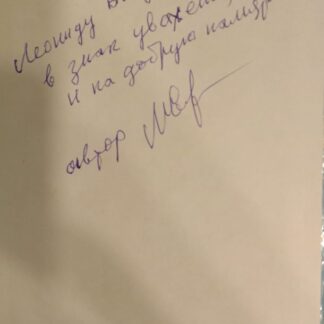 Леониду В
в знак уважен
и на добрую память
автор